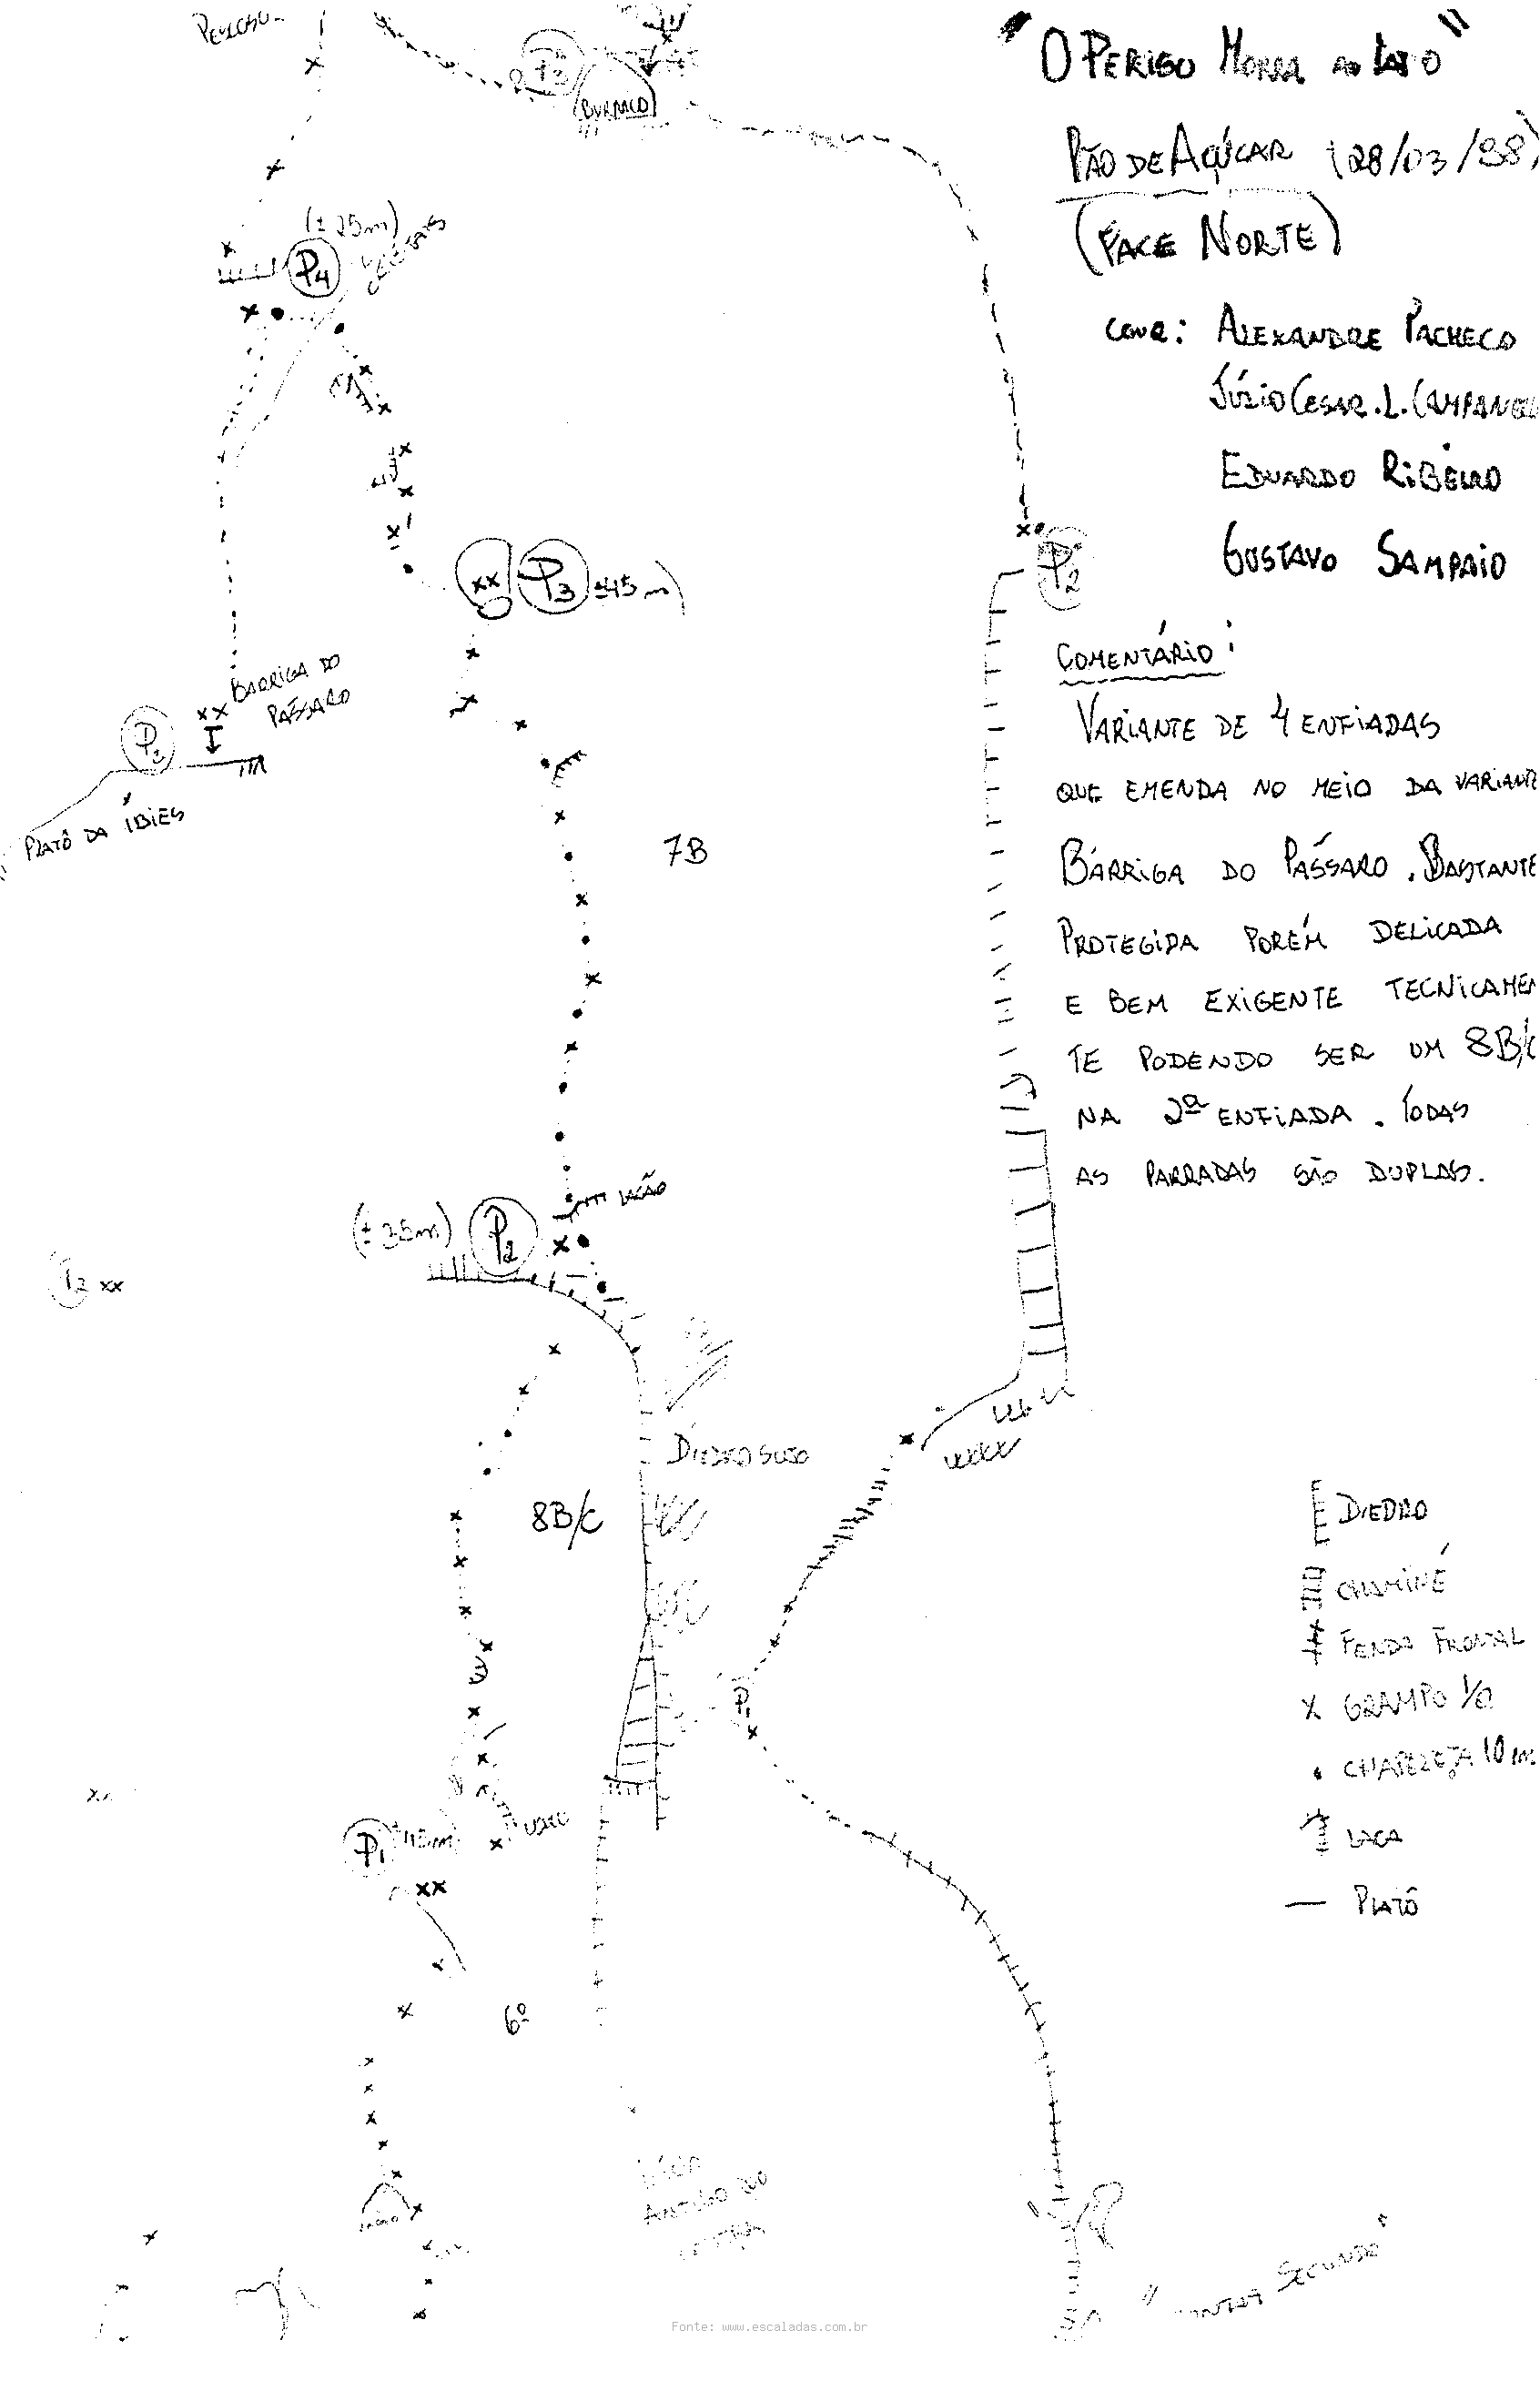 "O PERIGO MORA AO LADO"
PÃO DE AÇÚCAR (28/03/98)
(FACE NORTE)
CONQ: ALEXANDRE PACHECO
JÚLIO CESAR. L. CAMPANEL
EDUARDO RIBEIRO
GUSTAVO SAMPAIO
COMENTÁRIO:
VARIANTE DE 4 ENFIADAS
QUE EMENDA NO MEIO DA VARIANTE
BARRIGA DO PÁSSARO. BASTANTE
PROTEGIDA PORÉM DELICADA
E BEM EXIGENTE TECNICAMEN
TE PODENDO SER UM 8B/C
NA 2ª ENFIADA. TODAS
AS PARRADAS SÃO DUPLAS.
P3
(BURACO)
(± 25m)
P4
P3 ±45m)
P2
BARRIGA DO
PÁSSARO
P3
PLATÔ DA ÍBIES
7B
LACÃO
(± 35m) P2
P2 XX
DIEDRO SUJO
8B/C
P1
P1 ±45m
XX
6º
ANTIGO DO
SECUNDO"
DIEDRO
CHAMINÉ
FENDA FRONTAL
X GRAMPO 1/2
CHAPELETA 10 m
LACA
PLATÔ
Fonte: www.escaladas.com.br